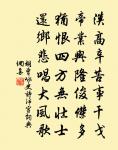 漢高辛苦事干戈
帝業興隆俊傑多
猶恨四方無壯士
還鄉悲唱大風歌
胡曾史詩沛宮詞典